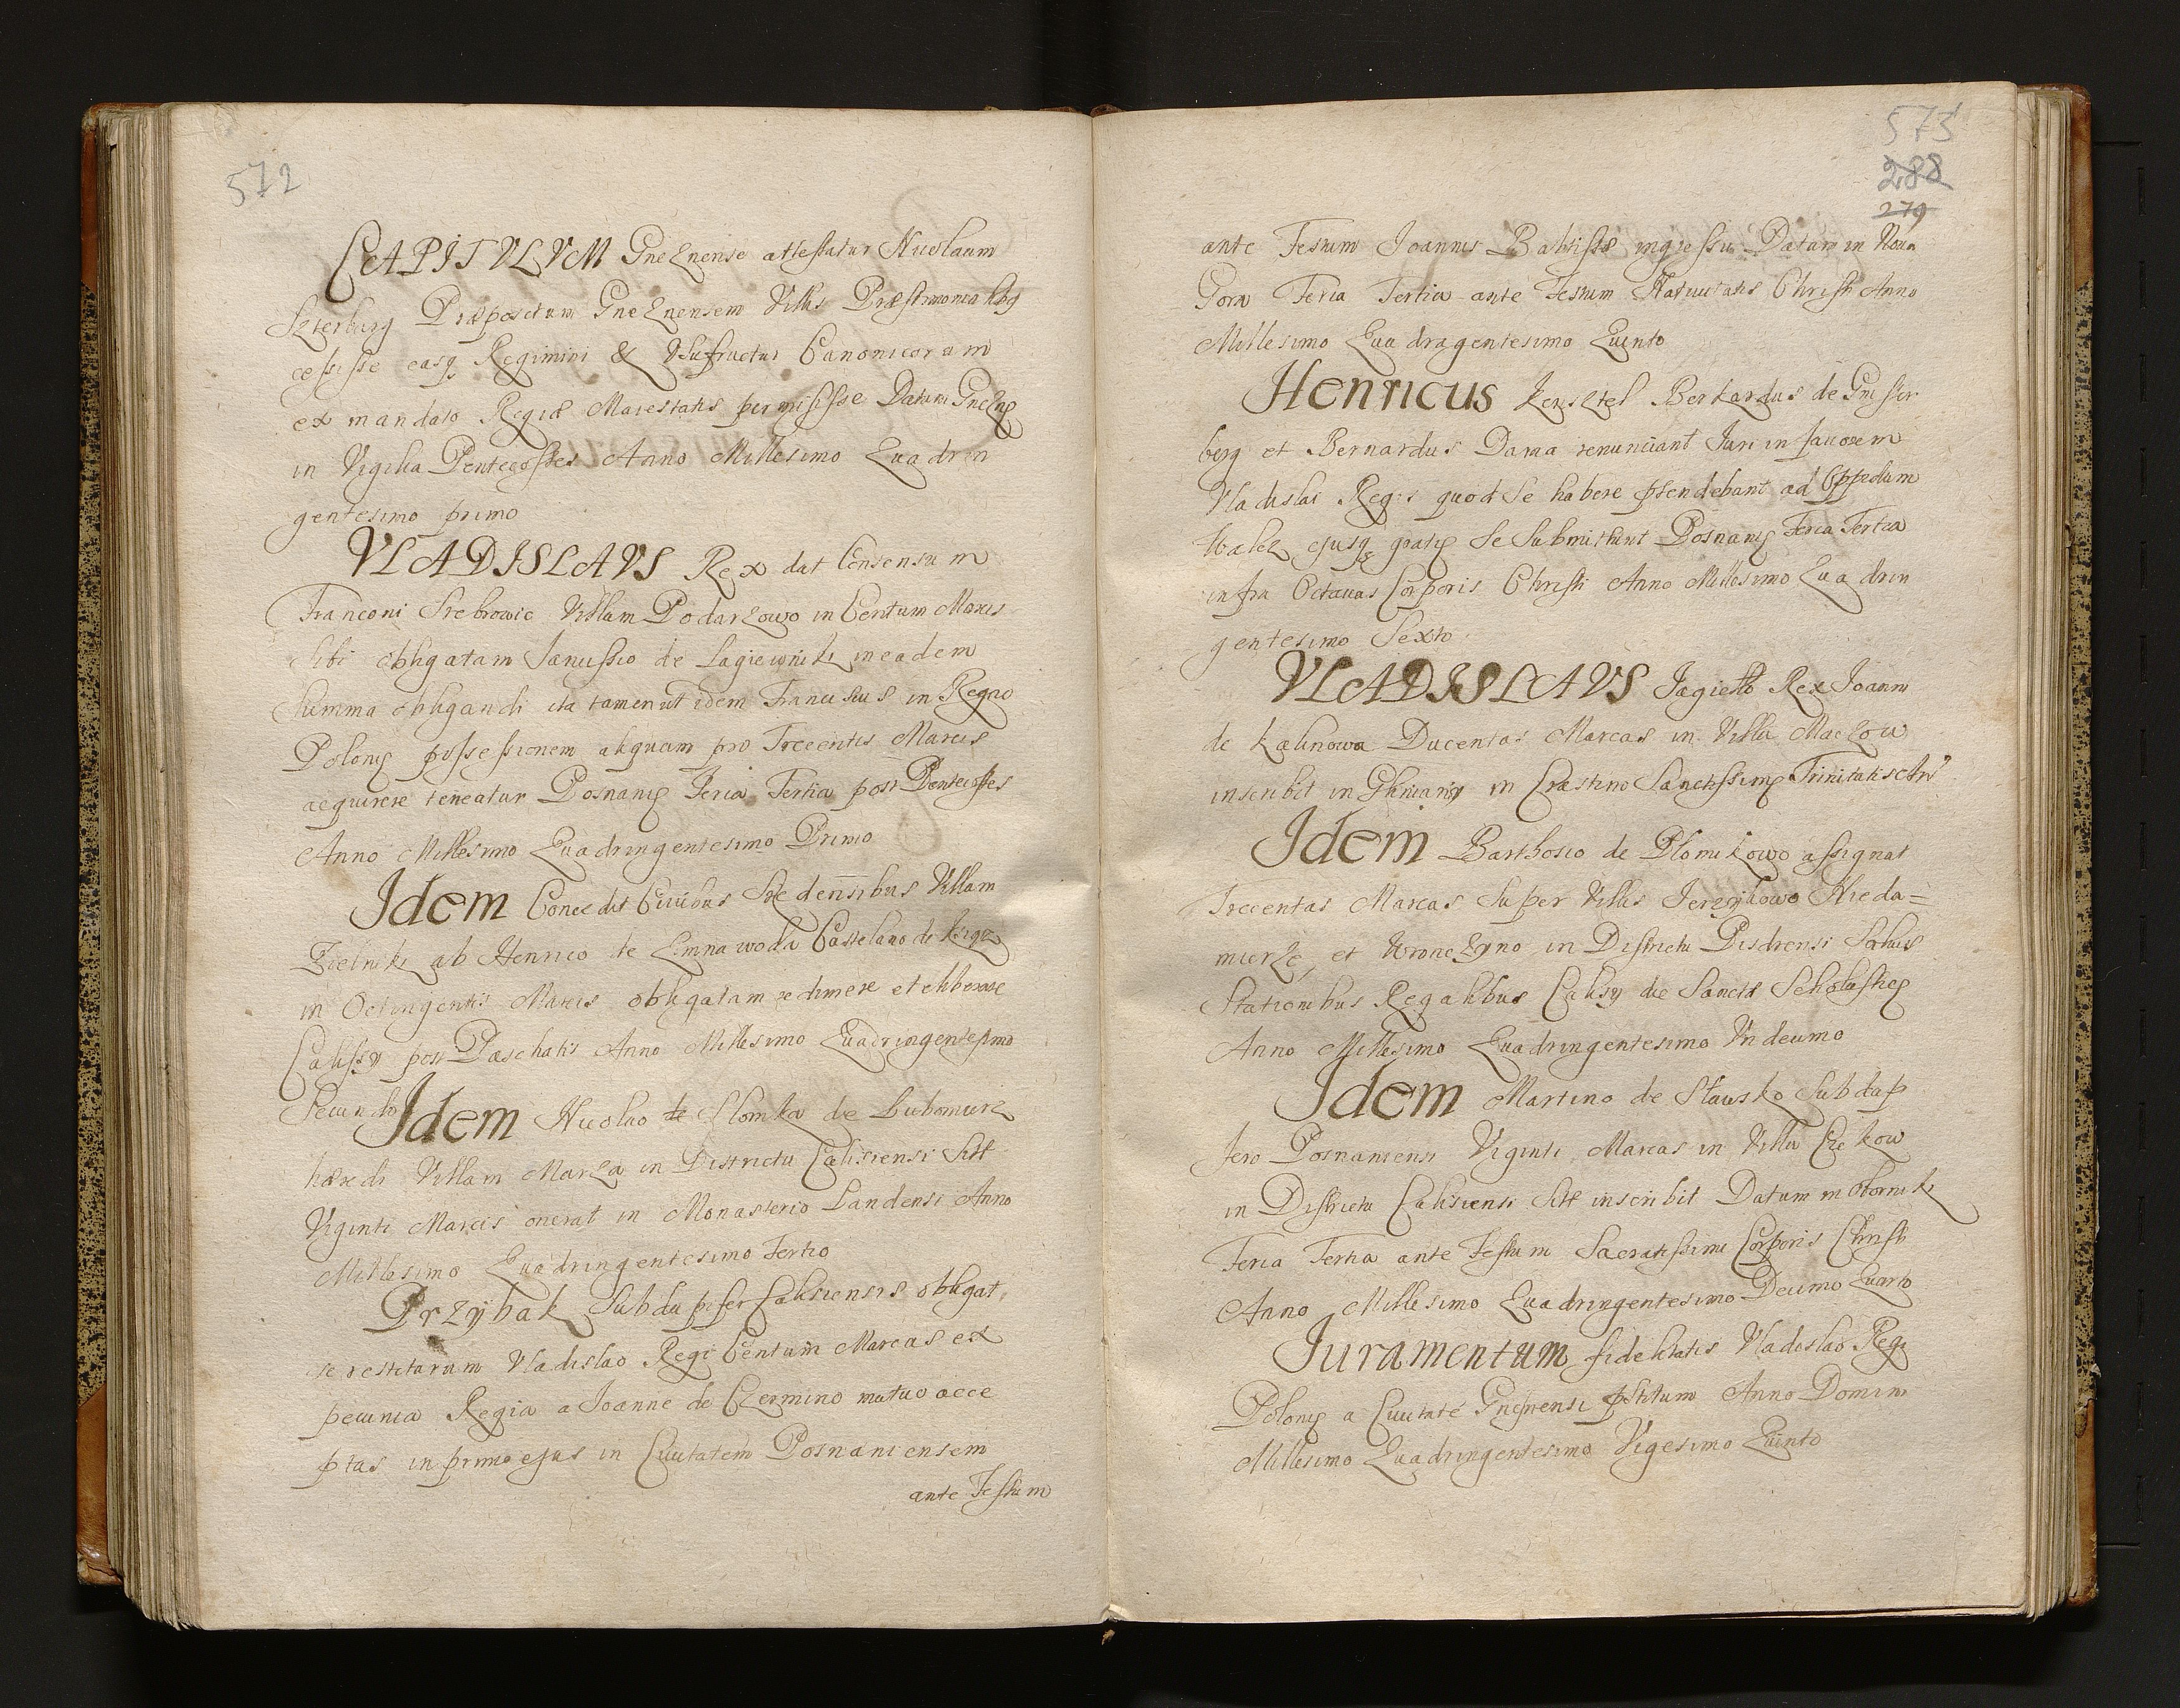 572
CAPITVLVM Gneznense attestatur Nicolaum
Szterburg Præpositum Gneznensem Villis Præstimonialibq
cessisse easq Regimini & Vsufructui Canonicorum
ex mandato Regiæ Maiestatis permisisse Datum Gneznę
in Vigilia Pentecostes Anno Millesimo Quadrin
gentesimo primo
VLADISLAVS Rex dat Consensum
Franconi Srebrowic Villam Podarzowo in Centum Marcis
Sibi obligatam Janussio de Lagiewniki in eadem
Summa obligandi ita tamen ut idem Franciscus in Regno
Polonię possessionem aliquam pro Trecentis Marcis
acquirere teneatur Posnanię Feria Tertia post Pentecostes
Anno Millesimo Quadringentesimo Primo
Idem Concedit Civibus Srzedensibus Villam
Zielniki ab Henrico de Zimnawoda Castelano de
in Octingentis Marcis obligatam redimere et eliberare
Calissy post Paschatis Anno Millesimo Quadringentesimo
Secundo
Idem Nicolao de Slomka de Lubomierz
hæredi Villam Marza in Districtu Calisiensi Sitt
Viginti Marcis onerat in Monasterio Landensi Anno
Millesimo Quadringentesimo Tertio
Przybak Subdapifer Calisiensis obligat
se restitaram Vladislao Regi Centum Marcas ex
pecunia Regia a Joanne de Czermino mutuo acce
ptas in primo ejus in Civitatem Posnaniensem
ante Festum
573
288
279
ante Festum Joannis Babtistæ ingressu Datam in Noua
Gora Feria Tertia ante Festum Natiuitatis Christi Anno
Millesimo Quadragentesimo Quinto
Henricus Kensztel Berkardus de Gnster
berg et Bernardus Dama renunciant Juri in fauorem
Vladislai Regis quod Se habere ptendebant ad Oppidum
Walcz ejusq gratię Se Submittunt Posnanię Feria Tertia
infra Octauas Corporis Christi Anno Millesimo Quadrin
gentesimo Sexto
VLADISLAVS Jagiełło Rex Joanni
de Kalinowa Ducentas Marcas in Villa Maczow
inscribit in in Crastino Sanctissimę Trinitatis An
Idem Barthosio de Plomikowo assignat
Trecentas Marcas Super Villis Jerzykowo Nieda=
mierze et Wronczyno in Districtu Pisdrensi Saluis
Stationibus Regalibus Calisy die Sanctæ Scholasticę
Anno Millesimo Quadringentesimo Vndecimo
Idem Martino de Slawsko Subdap
fero Posnaniensi Viginti Marcas in Villa Czekow
in Districtu Calisiensi Sitt inscribit Datum in Oborniki
Feria Tertia ante Festum Sacratissimi Corporis Christi
Anno Millesimo Quadringentesimo Decimo Quarto
Juramentum fidelitatis Vladislao Regi
Polonię a Ciuitate Gnesnensi pstitum Anno Domini
Millesimo Quadringentesimo Vigesimo Quinto